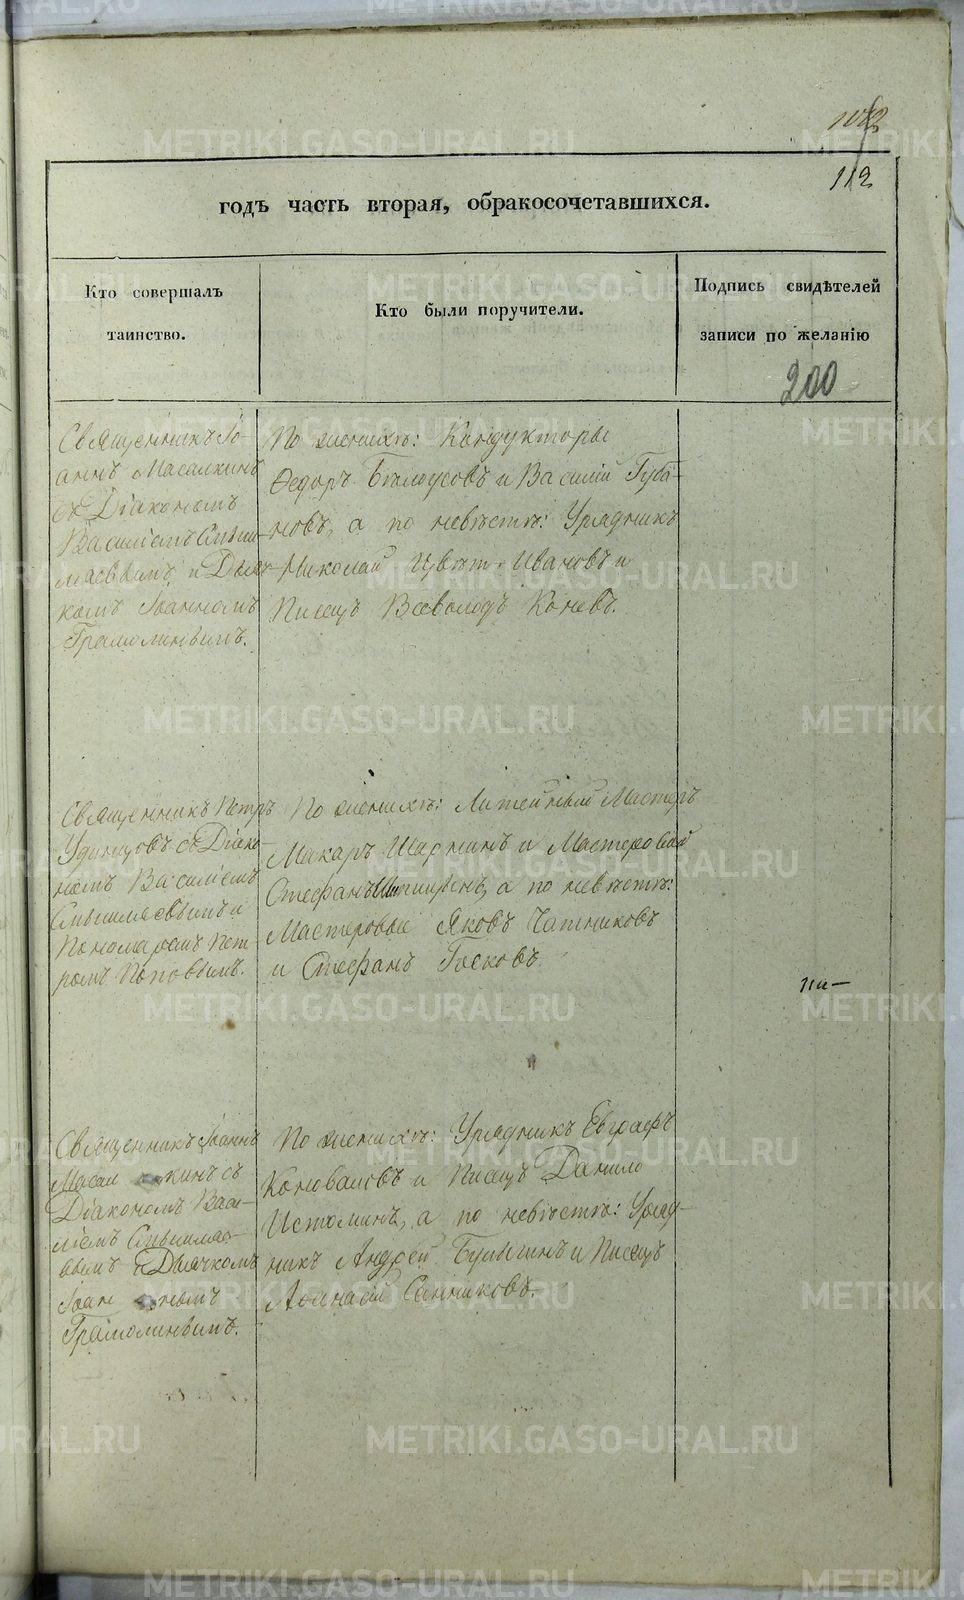 112
годъ часть вторая, обракосочетавшихся.
Кто совершалъ
таинство.
Кто были поручители.
Подпись свидѣтелей
записи по желанію
200
Священникъ Іо-
аннъ Масалкинъ
съ Діакономъ
Василіемъ
и Дьяч-
комъ Іоанномъ
Грамолинымъ.
По женихѣ: Кондукторы
Ѳедоръ Бѣлоусовъ и Василій Губа-
новъ, а по невѣстѣ: Урядникъ
Николай Цвѣт. Ивановъ и
Писецъ Всеволодъ Коневъ.
Священникъ Петръ
Удинцовъ съ Діако-
номъ Василіемъ
и
Пономаремъ Пет-
ромъ Поповымъ.
По женихѣ: Литейный Мастеръ
Макаръ и Мастеровой
Стефанъ а по невѣстѣ:
Мастеровые Яковъ
и Стефанъ Госковъ.
Священникъ Іоаннъ
Масалкинъ съ
Діакономъ Васи-
ліемъ
и Дьячкомъ
Іоанномъ
Грамолинымъ.
По женихѣ: Урядникъ Евграфъ
Коноваловъ и Писецъ Данило
Истоминъ, а по невѣстѣ: Уряд-
никъ Андрей и Писецъ
Аѳанасій Санниковъ.
METRIKI.GASO-URAL.RU